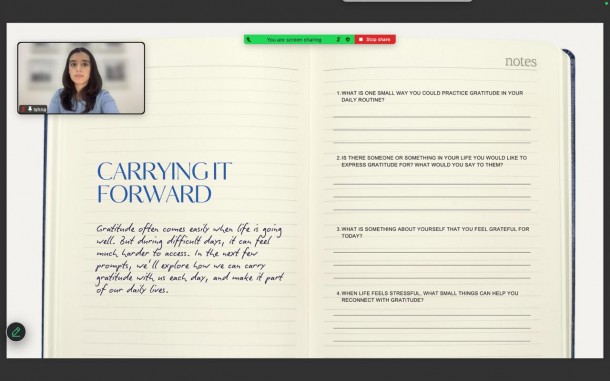 You are screen sharing
Stop share
CARRYING IT
FORWARD
Gratitude often comes easily when life is going
well. But during difficult days, it can feel
much harder to access. In the next few
prompts, we'll explore how we can carry
gratitude with us each day, and make it part
of our daily lives.
notes
1. WHAT IS ONE SMALL WAY YOU COULD PRACTICE GRATITUDE IN YOUR
DAILY ROUTINE?
2. IS THERE SOMEONE OR SOMETHING IN YOUR LIFE YOU WOULD LIKE TO
EXPRESS GRATITUDE FOR? WHAT WOULD YOU SAY TO THEM?
3. WHAT IS SOMETHING ABOUT YOURSELF THAT YOU FEEL GRATEFUL FOR
TODAY?
4. WHEN LIFE FEELS STRESSFUL, WHAT SMALL THINGS CAN HELP YOU
RECONNECT WITH GRATITUDE?